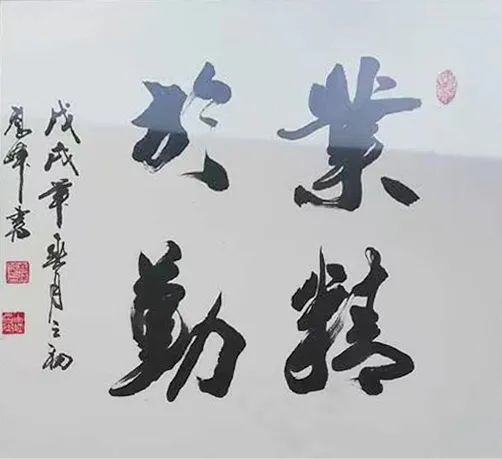 業精
於勤
戊戌年月之初
峰書